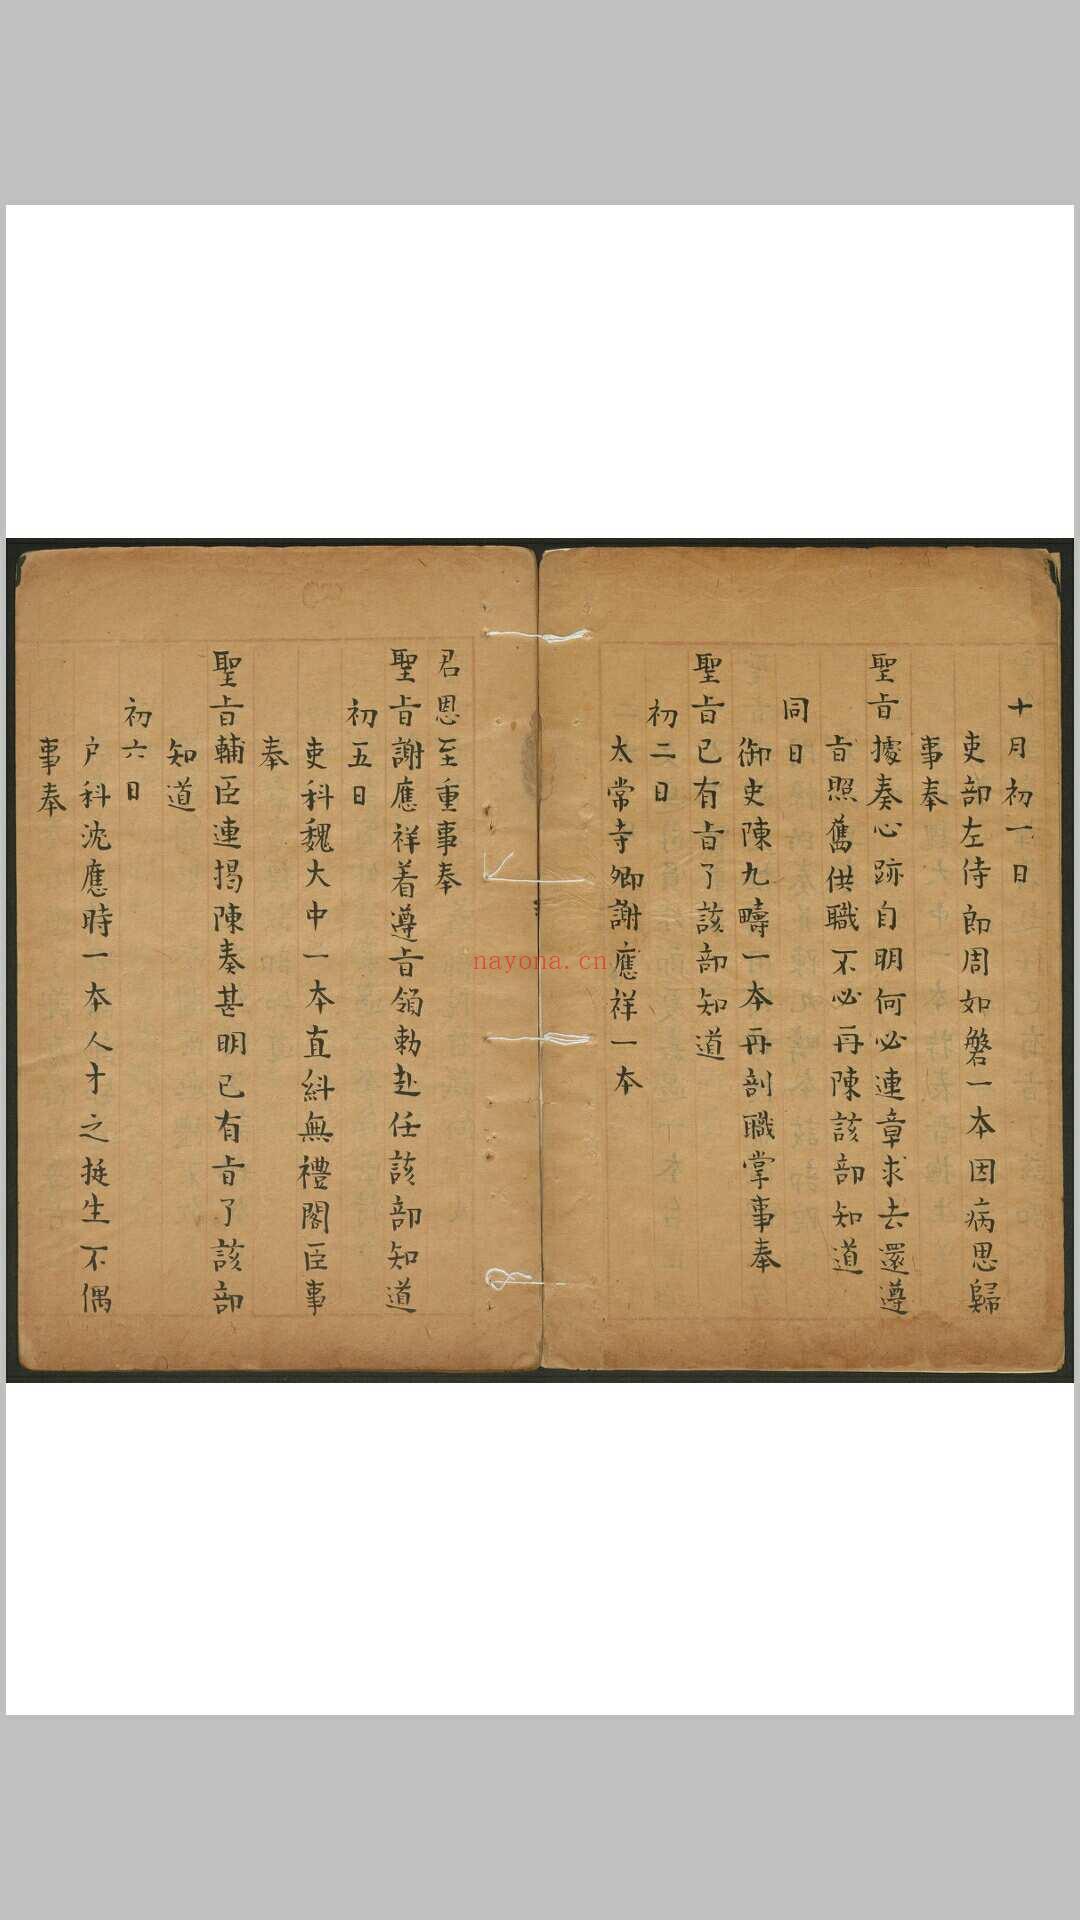 十月初一日
吏部左侍郎周如磐一本因病思歸
事奉
聖旨據奏心跡自明何必連章求去還遵
旨照舊供職不必再陳該部知道
同日
御史陳九疇一本再剖職掌事奉
聖旨已有旨了該部知道
初二日
太常寺卿謝應祥一本
君恩至重事奉
聖旨謝應祥着遵旨領勅赴任該部知道
初五日
吏科魏大中一本直糾無禮閣臣事
奉
聖旨輔臣連揭陳奏甚明已有旨了該部
知道
初六日
户科沈應時一本人才之挺生不偶
事奉
nayona.cn